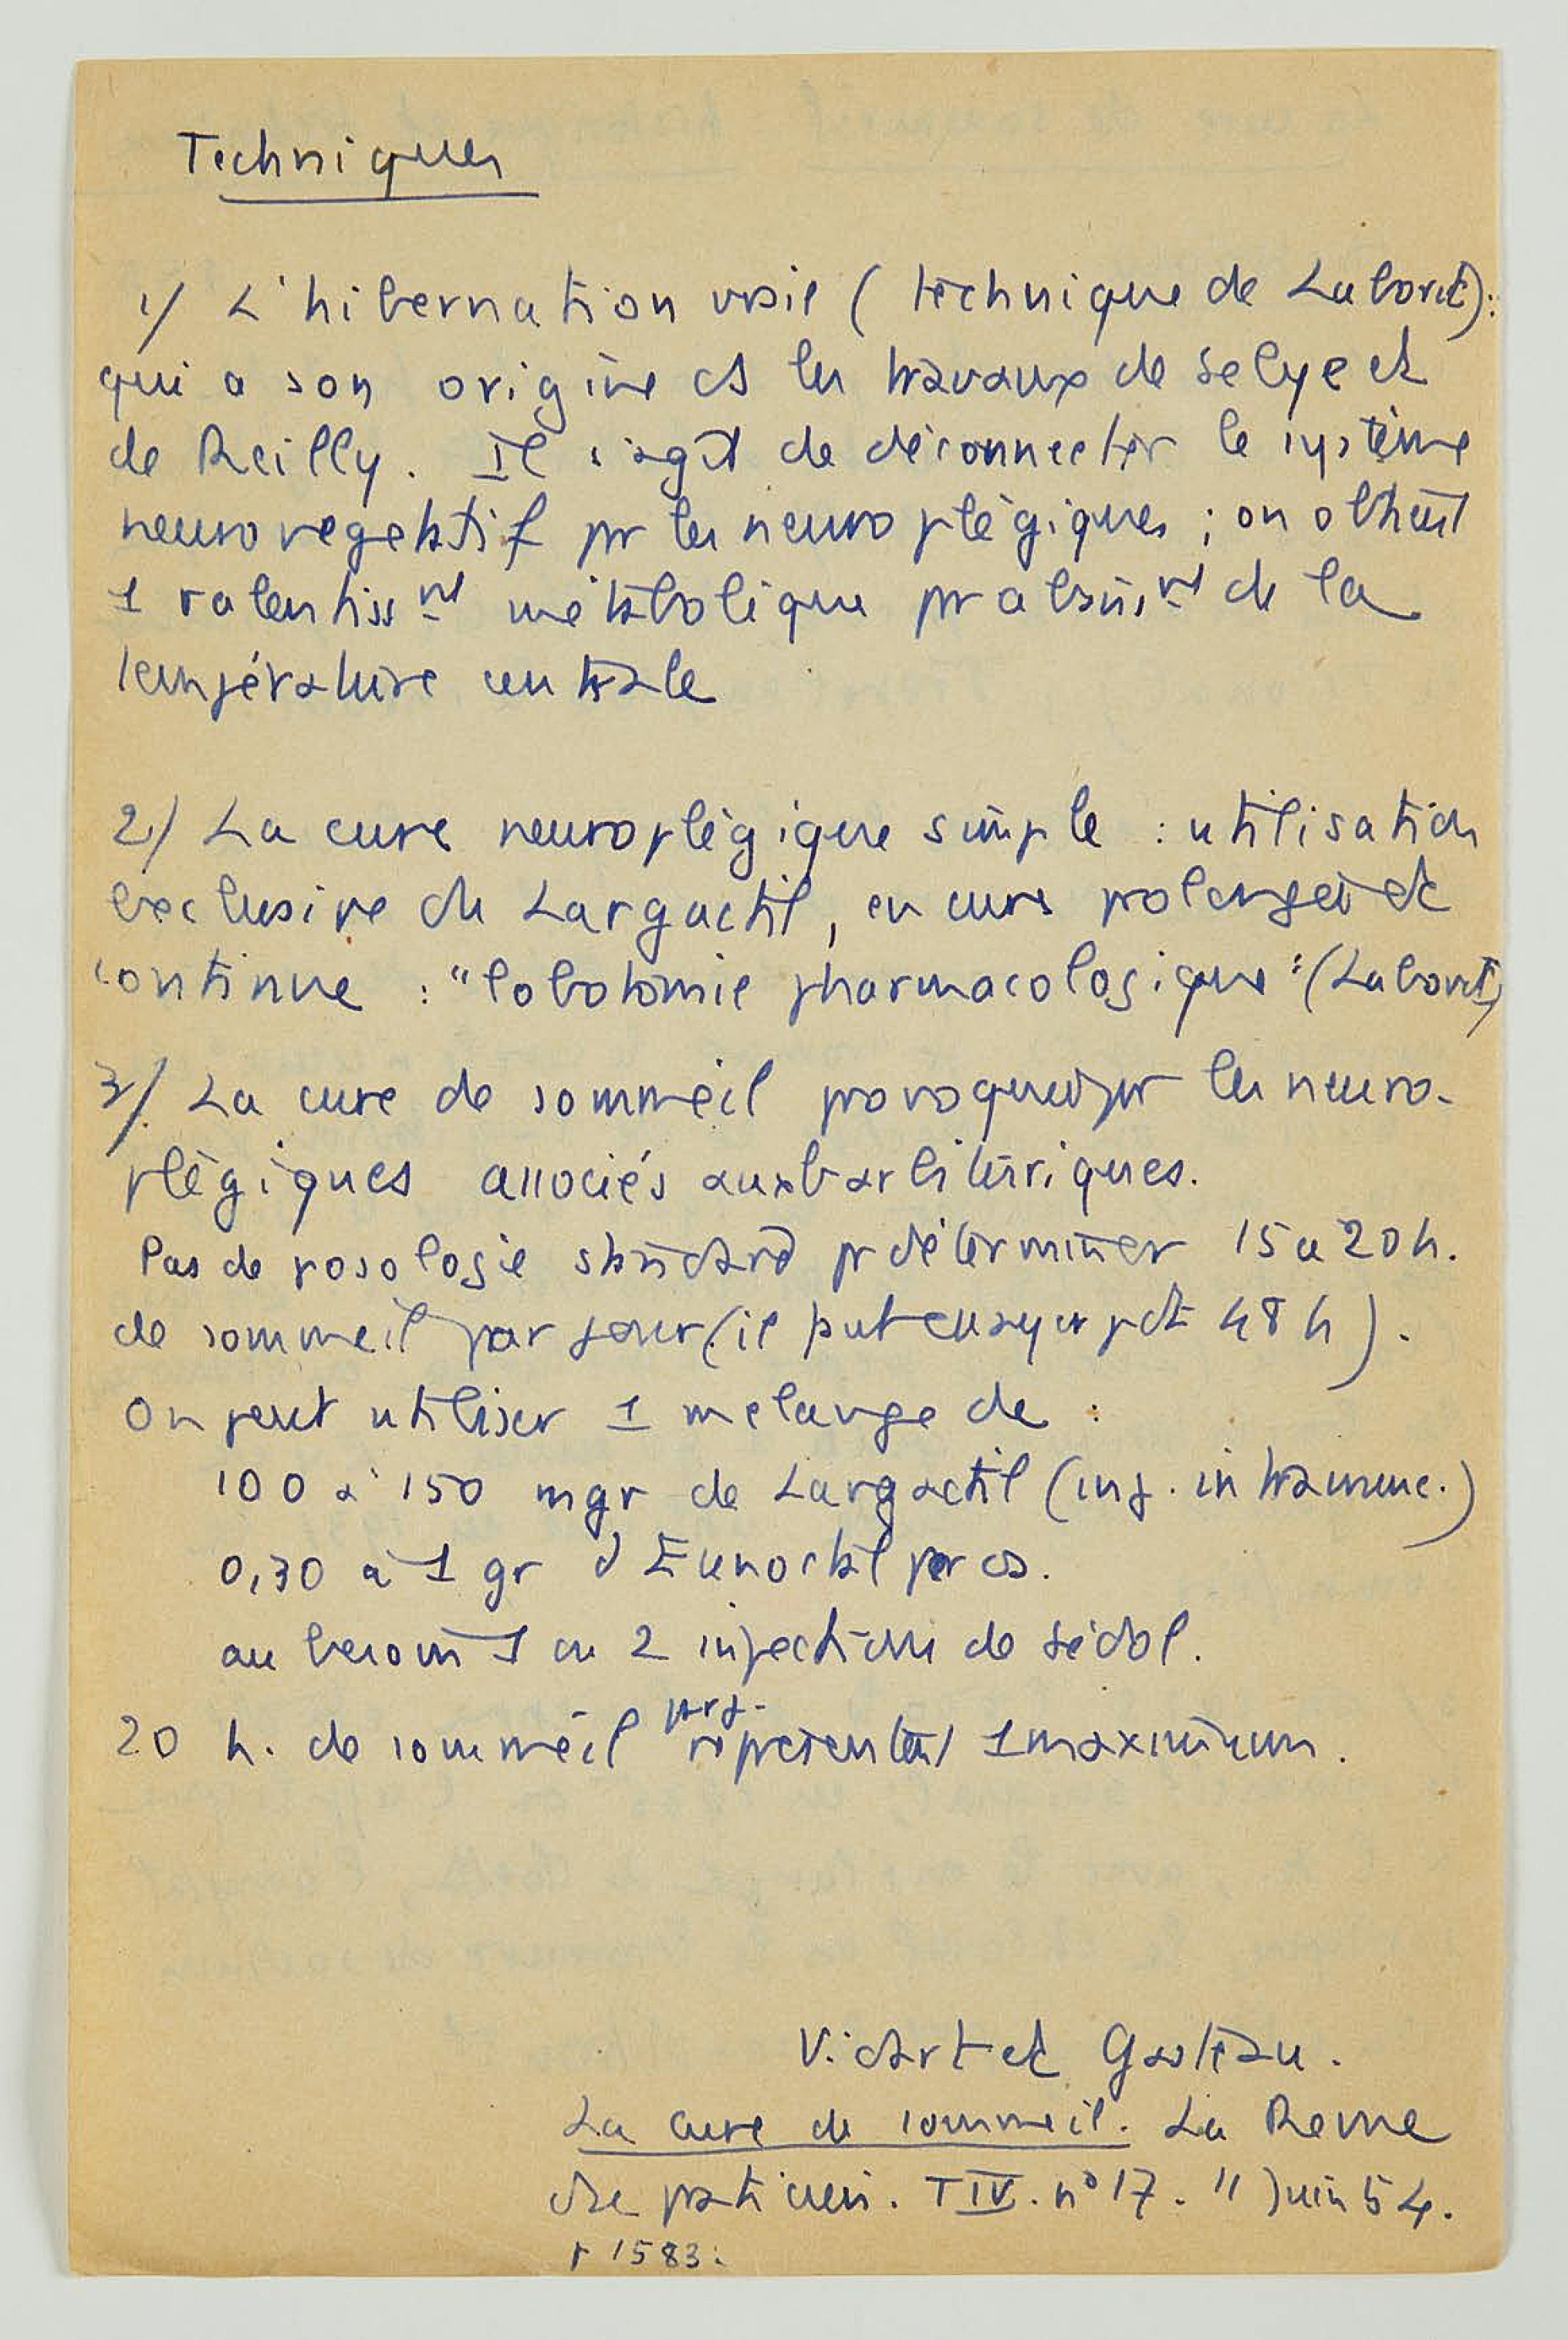 Techniques
1/ L'hibernation vraie (technique de Laborit):
qui a son origine ds les travaux de Selye et
de Reilly. Il s'agit de déconnecter le système
neurovegetatif pr les neuroplégiques ; on obtient
1 ralentissnt métabolique pr abaissnt de la
température centrale
2/ La cure neuroplégique simple : utilisation
exclusive du Largactil, en cure prolongée et
continue : "lobotomie pharmacologique" (Laborit)
3/. La cure de sommeil provoquée pr les neuro-
plégiques associés aux barbituriques.
Pas de posologie standard pr déterminer 15 a 20 h.
de sommeil par jour (il faut essayer pdt 48 h).
On peut utiliser 1 melange de :
100 à 150 mgr de Largactil (inj. intramusc.)
0,30 à 1 gr d'Eunoctal per os.
au besoin 1 ou 2 injections de Sédol.
20 h. de sommeil par j. représentent 1 maximum.
Vidart et Gasteau.
La cure de sommeil. La Revue
du praticien. T IV. n° 17. 11 Juin 54.
p 1583.